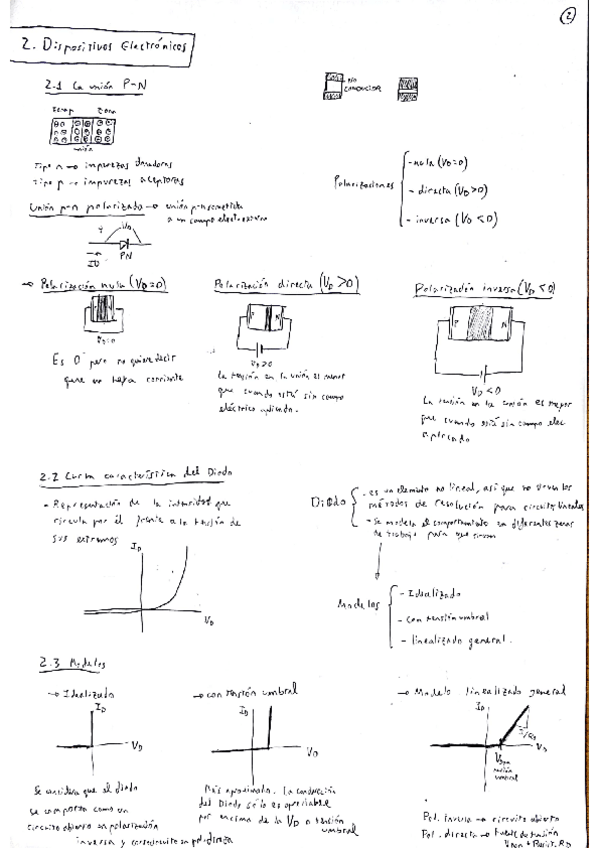 2
2. Dispositivos Electrónicos
2.1 La unión P-N
NO
CONDUCTOR
Zona p Zona n
unión
Tipo n → impurezas donadoras
Tipo p → impurezas aceptoras
Polarizaciones
- nula (VD=0)
- directa (VD>0)
- inversa (VD<0)
Unión p-n polarizada → unión p-n sometida
a un campo electrostático
VD
ID
PN
→ Polarización nula (VD=0)
Polarización directa (VD>0)
Polarización inversa (VD<0)
P N
VD=0
Es 0 pero no quiere decir
que no haya corriente
P N
VD>0
La tensión en la unión es menor
que cuando está sin campo
eléctrico aplicado.
P N
VD<0
La tensión en la unión es mayor
que cuando está sin campo elec
aplicado
2.2 Curva característica del Diodo
- Representación de la intensidad que
circula por él frente a la tensión de
sus extremos
ID
VD
Diodo
- es un elemento no lineal, así que no sirven los
métodos de resolución para circuitos lineales
- Se modela el comportamiento en diferentes zonas
de trabajo para que sirvan
Modelos
- Idealizado
- con tensión umbral
- linealizado general.
2.3 Modelos
→ Idealizado
ID
VD
Se considera que el diodo
se comporta como un
circuito abierto en polarización
inversa y cortocircuito en pol. directa
→ con tensión umbral
ID
VD
Más aproximado. La conducción
del Diodo sólo es apreciable
por encima de la VD o tensión
umbral
→ Modelo linealizado general
ID
1/RD
VD
tensión
umbral
Pol. inversa → circuito abierto
Pol. directa → fuente de tensión